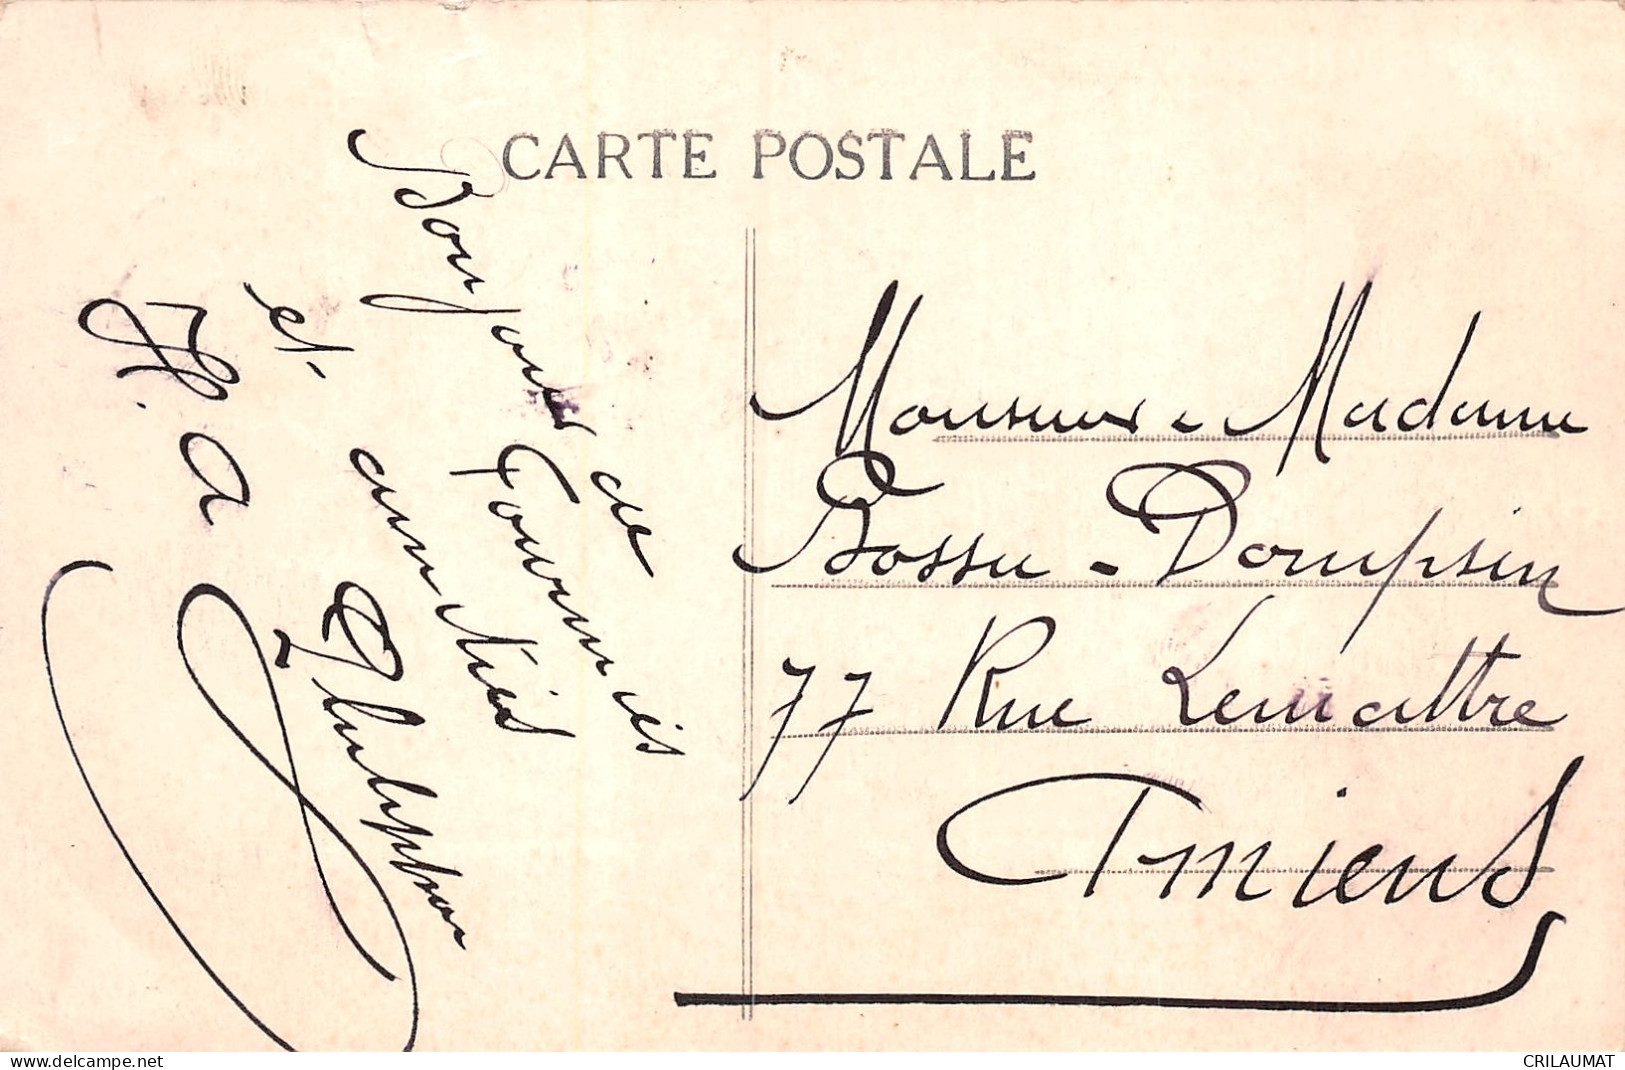 CARTE POSTALE
Bonjour de
Tourmies
et amitiés
H. a
Monsieur e Madame
Bossu - Dompsin
77 Rue Lemattre
Amiens
delcampe.net
CRILAUMAT